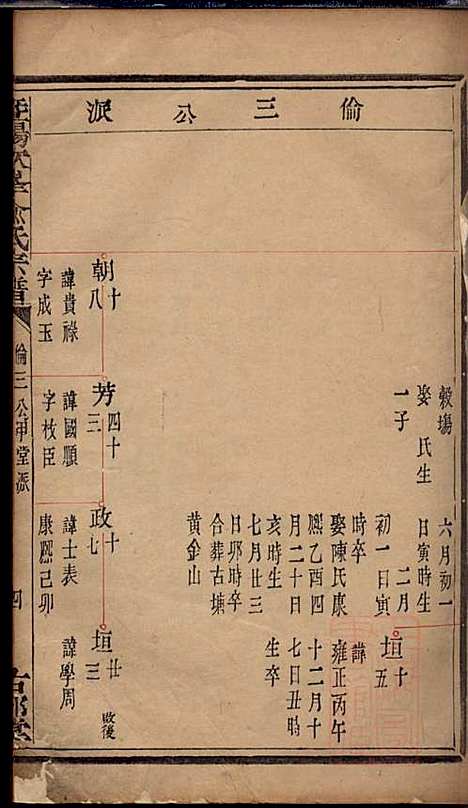 倫三公派
穀塲
娶　氏生
一子
六月初一
日寅時生
二月
初一日寅
時卒
娶陳氏康
熙乙酉四
月二十日
亥時生
七月廿三
日卯時卒
合葬古塘
黄金山
垣十五
諱
雍正丙午
十二月十
七日丑時
生卒
朝十八
諱貴祿
字成玉
芳四十三
諱國順
字枚臣
政十七
諱士表
康熙己卯
垣廿三
諱學周
敗後
氏宗譜
倫三公甲堂派
四